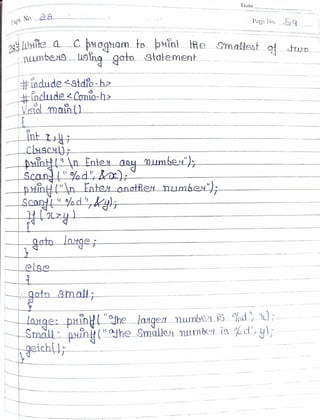 Date
Expt. No. 28
Page No. 59
28) Write a C program to print the smallest of two
numbers using goto statement
#include <stdio.h>
#include <Conio.h>
Void main()
{
int x,y;
Clrscr();
printf("\n Enter any number");
Scanf("%d", &x);
printf("\n Enter another number");
Scanf("%d", &y);
If (x>y)
{
goto large;
}
else
{
goto small;
}
large: printf("The larger number is %d", x);
Small: printf("The Smaller number is %d", y);
getch();
}